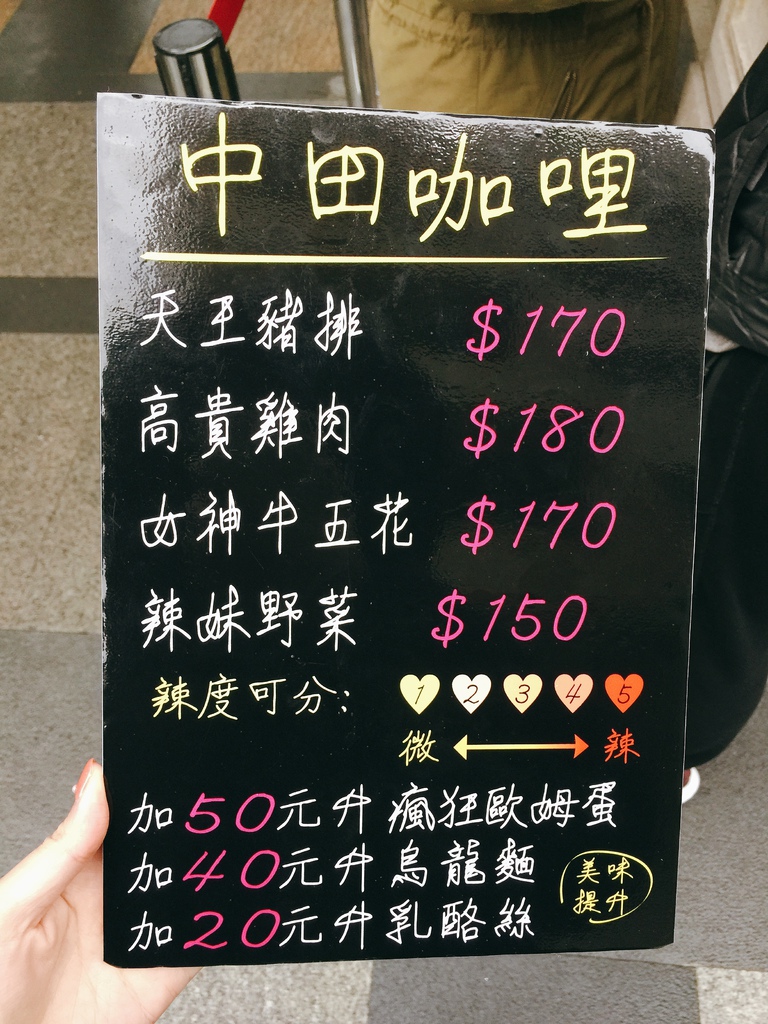 中田咖哩
天王豬排 $170
高貴雞肉 $180
女神牛五花 $170
辣妹野菜 $150
辣度可分: 1 2 3 4 5
微 辣
加50元升瘋狂歐姆蛋
加40元升烏龍麵
加20元升乳酪絲
美味
提升